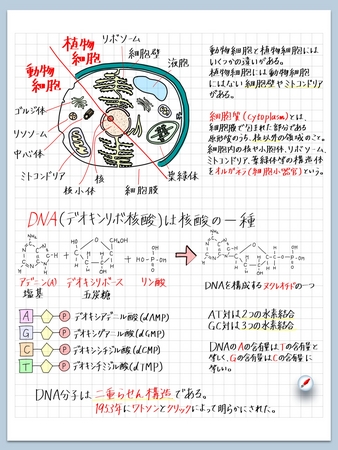 植物
細胞
動物
細胞
リボソーム
細胞壁
液胞
ゴルジ体
リソソーム
中心体
ミトコンドリア
核
核小体
細胞膜
葉緑体
動物細胞と植物細胞には
いくつかの違いがある。
植物細胞には動物細胞
にはない細胞壁やミトコンドリア
がある。
細胞質(cytoplasm)とは、
細胞膜で包まれた部分である
原形質のうち、核以外の領域のこと。
細胞内の核や小胞体、リボソーム、
ミトコンドリア、葉緑体等の構造体
をオルガネラ(細胞小器官)という。
DNA(デオキシリボ核酸)は核酸の一種
アデニン(A)
塩基
デオキシリボース
五炭糖
リン酸
DNAを構成するヌクレオチドの一つ
A P デオキシアデニル酸(dAMP)
G P デオキシグアニル酸(dGMP)
C P デオキシシチジル酸(dCMP)
T P デオキシチミジル酸(dTMP)
AT対は2つの水素結合
GC対は3つの水素結合
DNAのAの含有量はTの含有量と
等しく、Gの含有量はCの含有量に
等しい。
DNA分子は二重らせん構造である。
1953年にワトソンとクリックによって明らかにされた。